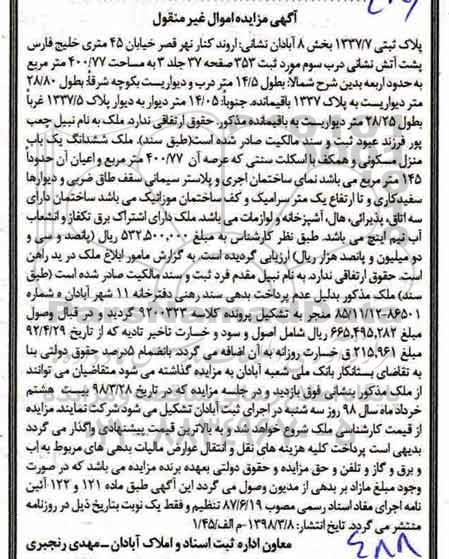 آگهی مزایده اموال غیر منقول
پلاک ثبتی ۱۳۳۷/۷ بخش ۸ آبادان نشانی: اروند کنار نهر قصر خیابان ۴۵ متری خلیج فارس
پشت آتش نشانی درب سوم مورد ثبت ۳۵۳ صفحه ۳۷ جلد ۳ به مساحت ۴۰۰/۷۷ متر مربع
به حدود اربعه بدین شرح شمالاً: بطول ۱۴/۵ متر درب و دیواریست بکوچه شرقاً: بطول ۲۸/۸۰
متر دیواریست به پلاک ۱۳۳۷ باقیمانده. جنوباً: ۱۴/۰۵ متر دیوار به دیوار پلاک ۱۳۳۷/۵ غرباً
بطول ۲۸/۲۵ متر دیواریست به باقیمانده مذکور. حقوق ارتفاقی ندارد. ملک به نام نبیل چعب
پور فرزند عبود ثبت و سند مالکیت صادر شده است(طبق سند). ملک ششدانگ یک باب
منزل مسکونی و همکف با اسکلت سنتی که عرصه آن ۴۰۰/۷۷ متر مربع و اعیان آن حدوداً
۱۴۵ متر مربع می باشد نمای ساختمان آجری و پلاستر سیمانی سقف طاق ضربی و دیوارها
سفیدکاری و تا ارتفاع یک متر سرامیک و کف ساختمان موزائیک می باشد ساختمان دارای
سه اتاق، پذیرائی، هال، آشپزخانه و لوازمات می باشد. ملک دارای اشتراک برق تکفاز و انشعاب
آب نیم اینچ می باشد. طبق نظر کارشناس به مبلغ ۵۳۲,۵۰۰,۰۰۰ ریال (پانصد و سی و
دو میلیون و پانصد هزار ریال) ارزیابی گردیده است. به گزارش مامور ابلاغ ملک در ید راهن
است. حقوق ارتفاقی ندارد. به نام نبیل مقدم فرد ثبت و سند مالکیت صادر شده است (طبق
سند) ملک مذکور بدلیل عدم پرداخت بدهی سند رهنی دفترخانه ۱۱ شهر آبادان ه شماره
۸۶۵۰۱-۸۵/۱۱/۱۲ منجر به تشکیل پرونده کلاسه ۹۲۰۰۳۲۳ گردید و در قبال وصول
مبلغ ۶۶۵,۴۹۵,۲۸۲ ریال شامل اصول و سود و خسارت تأخیر تادیه که از تاریخ ۹۲/۴/۲۹
مبلغ ۲۱۵,۹۶۱ ق خسارت روزانه به آن اضافه می گردد. بانضمام ۵درصد حقوق دولتی بنا
به تقاضای بستانکار بانک ملی شعبه آبادان به مزایده گذاشته می شود متقاضیان می توانند
از ملک مذکور بنشانی فوق بازدید و در جلسه مزایده که در تاریخ ۹۸/۳/۲۸ بیست هشتم
خرداد ماه سال ۹۸ روز سه شنبه در اجرای ثبت آبادان تشکیل می شود شرکت نمایند. مزایده
از قیمت کارشناسی ملک شروع خواهد شد و به بالاترین قیمت پیشنهادی واگذار می گردد
بدیهی است پرداخت کلیه هزینه های نقل و انتقال عوارض مالیات بدهی های مربوط به آب
و برق و گاز و تلفن و حق مزایده و حقوق دولتی بعهده برنده مزایده می باشد که در صورت
وجود مبلغ مازاد بر بدهی از مدیون وصول می گردد این آگهی طبق ماده ۱۲۱ و ۱۲۲ آئین
نامه اجرای مفاد اسناد رسمی مصوب ۸۷/۶/۱۹ تنظیم و فقط یک نوبت بتاریخ ذیل در روزنامه
منتشر می گردد. تاریخ انتشار: ۱۳۹۸/۳/۸-م الف/۱/۴۵
معاون اداره ثبت اسناد و املاک آبادان –مهدی رنجبری